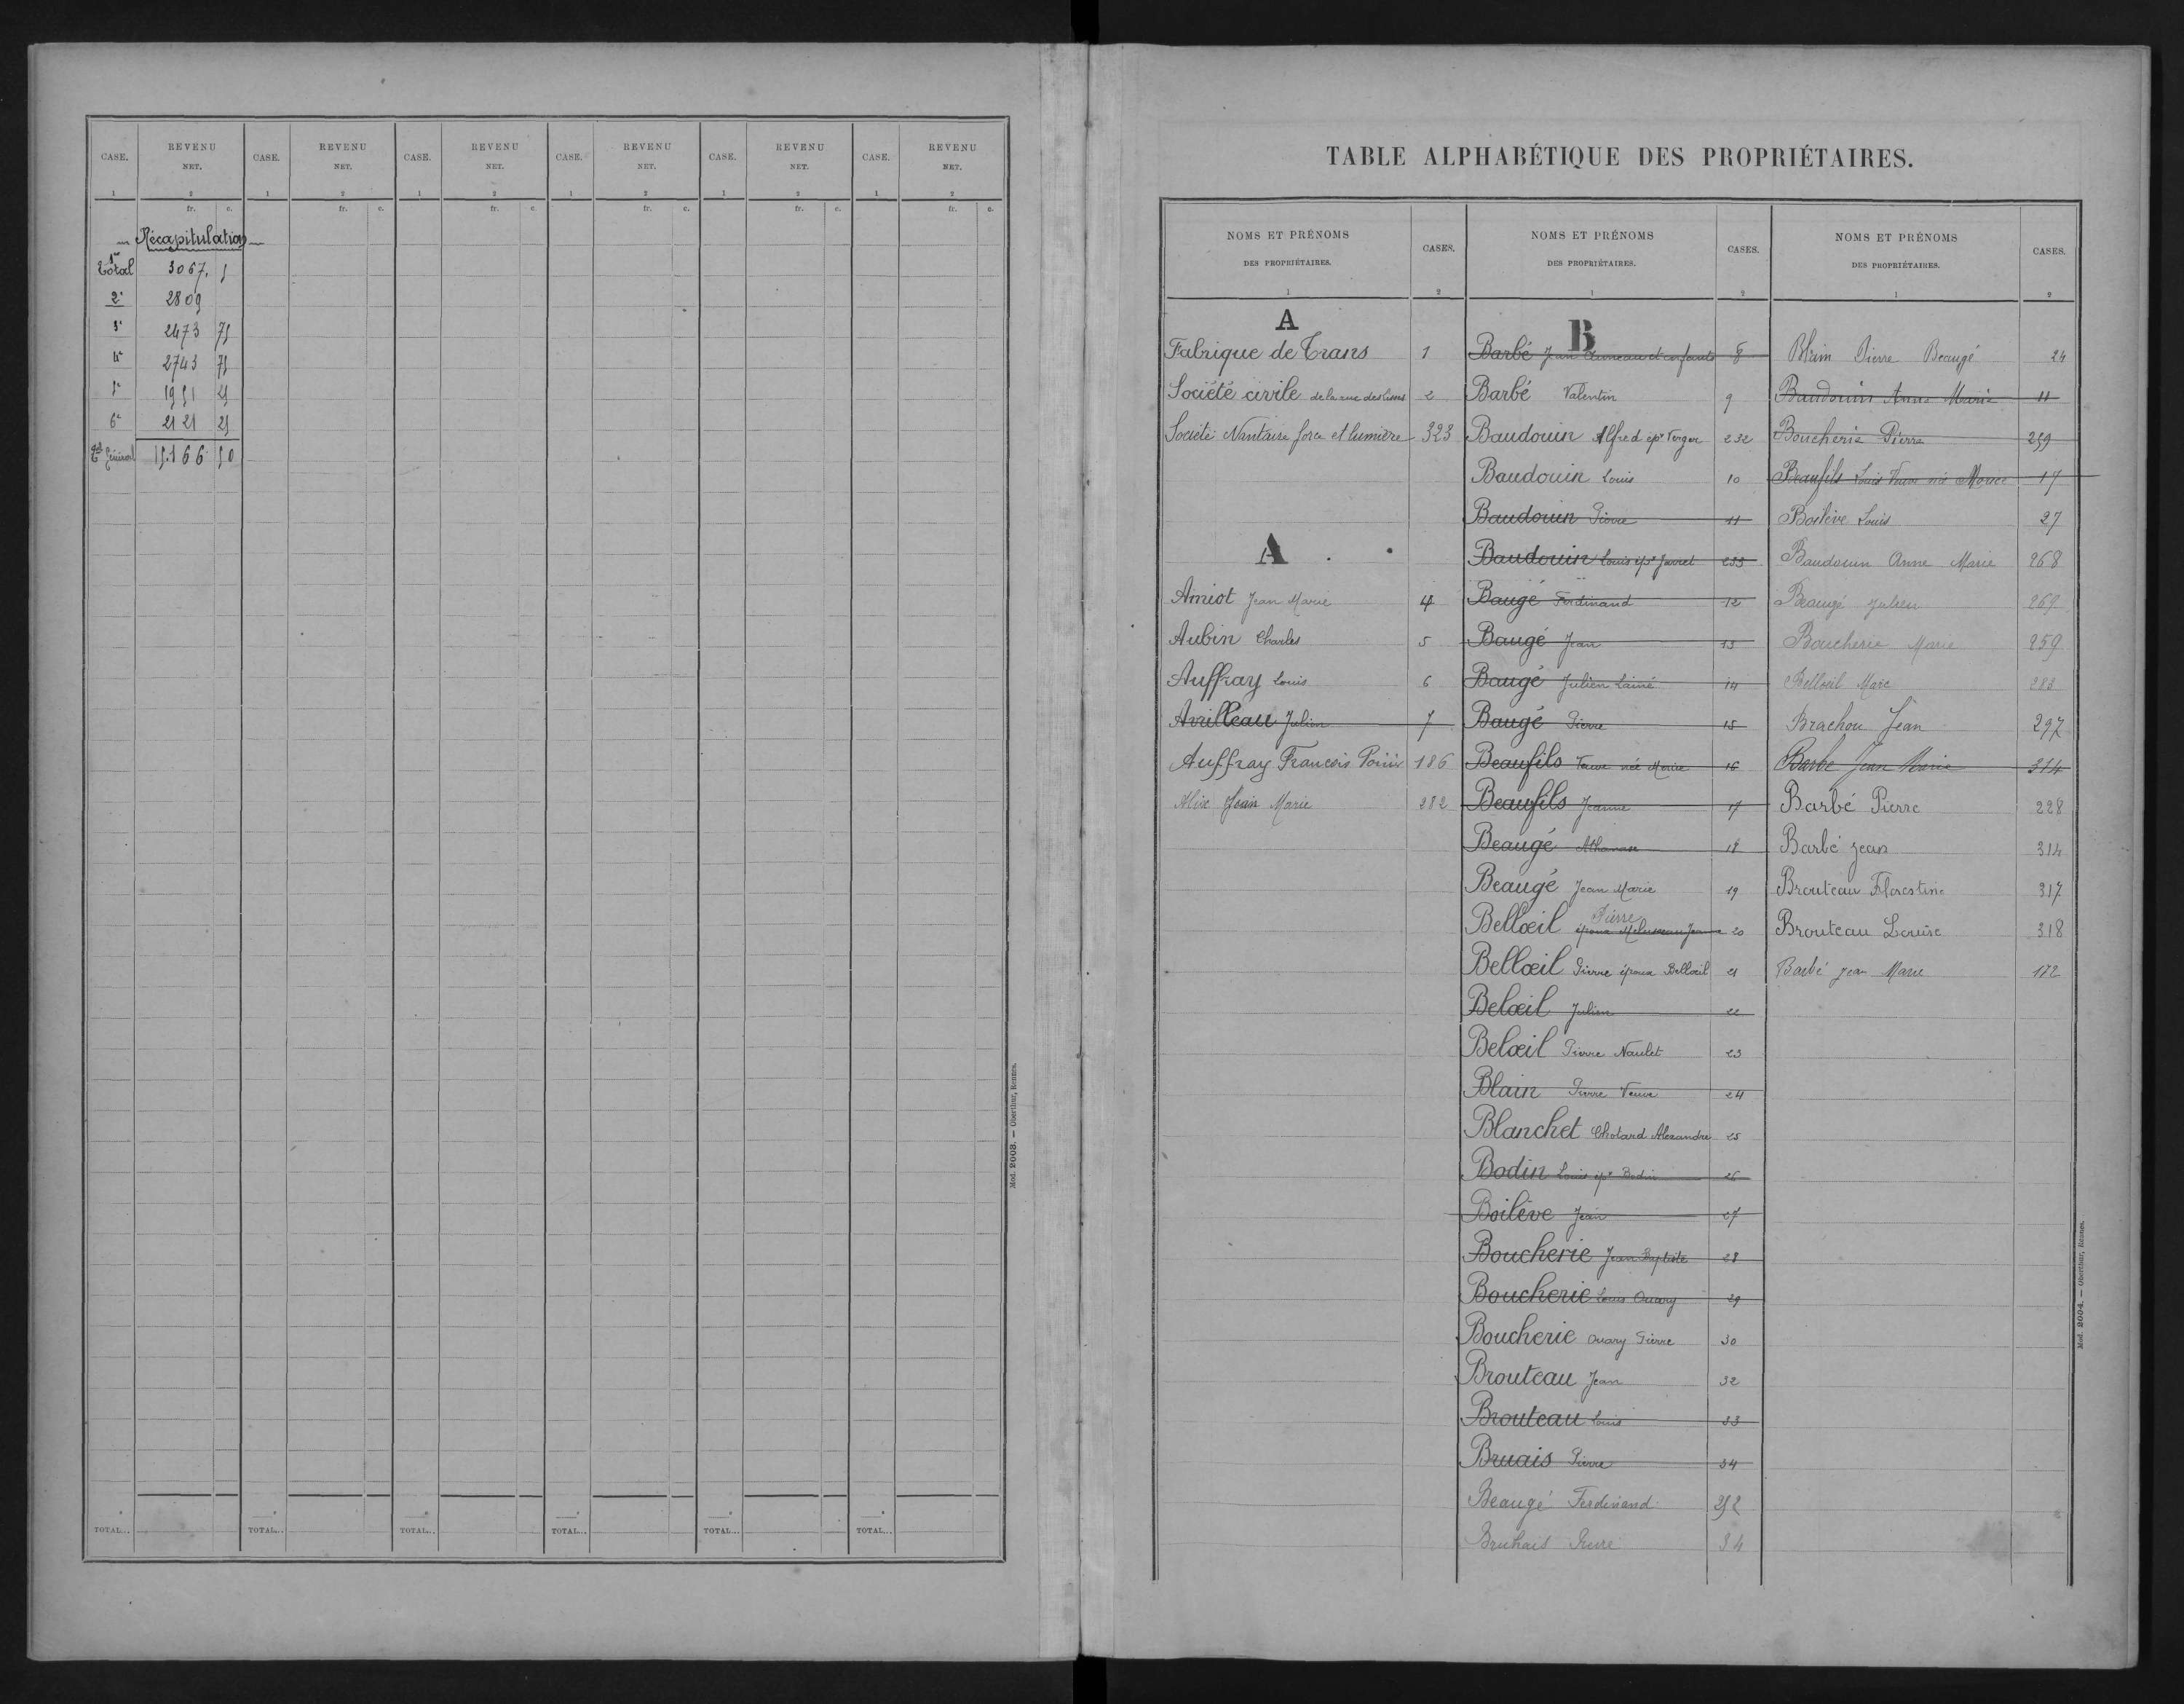 CASE. REVENU NET. CASE. REVENU NET. CASE. REVENU NET. CASE. REVENU NET. CASE. REVENU NET. CASE. REVENU NET.
1 2 1 2 1 2 1 2 1 2 1 2
fr. c. fr. c. fr. c. fr. c. fr. c. fr. c.
Récapitulation
1er Total 3067. 5
2e 2809
3e 2473 75
4e 2743 75
5e 1951 25
6e 2121 25
Tal Général 15.166 50
TOTAL... TOTAL... TOTAL... TOTAL... TOTAL... TOTAL...
Mod. 2003. — Oberthur, Rennes.
TABLE ALPHABÉTIQUE DES PROPRIÉTAIRES.
NOMS ET PRÉNOMS DES PROPRIÉTAIRES. CASES. NOMS ET PRÉNOMS DES PROPRIÉTAIRES. CASES. NOMS ET PRÉNOMS DES PROPRIÉTAIRES. CASES.
1 2 1 2 1 2
A
Fabrique de Trans 1
Société civile de la rue des Lisses 2
Société Nantaise force et lumière 323
A
Amiot Jean Marie 4
Aubin Charles 5
Auffray Louis 6
Avrilleau Julien 7
Auffray François 186
Alix Jean Marie 282
B
Barbé Jean et enfants 8
Barbé Valentin 9
Baudouin Alfred epx Verger 232
Baudouin Louis 10
Baudouin Pierre 11
Baudouin Louis epx Jarret 233
Baugé Ferdinand 12
Baugé Jean 13
Baugé Julien Lainé 14
Baugé Pierre 15
Beaufils Veuve née Morice 16
Beaufils Jeanne 17
Beaugé Athanase 18
Beaugé Jean Marie 19
Pierre
Bellœil époux Jeanne 20
Bellœil Pierre époux Bellœil 21
Belœil Julien 22
Belœil Pierre Naulet 23
Blain Pierre Veuve 24
Blanchet Chotard Alexandre 25
Bodin Louis epx Bodin 26
Boilève Jean 27
Boucherie Jean Baptiste 28
Boucherie Louis Ouary 29
Boucherie Ouary Pierre 30
Brouteau Jean 32
Brouteau Louis 33
Bruais Pierre 34
Beaugé Ferdinand 252
Bruhais Pierre 34
Blain Pierre Beaugé 24
Baudouin Anne Marie 11
Boucherie Pierre 259
Beaufils Louis Veuve née Morice 17
Boilève Louis 27
Baudouin Anne Marie 268
Beaugé Julien 269
Boucherie Marie 259
Bellœil Marc 283
Brachou Jean 297
Barbé Jean Marie 314
Barbé Pierre 228
Barbé Jean 314
Brouteau Florestine 317
Brouteau Louise 318
Barbé Jean Marie 172
Mod. 2004. — Oberthur, Rennes.